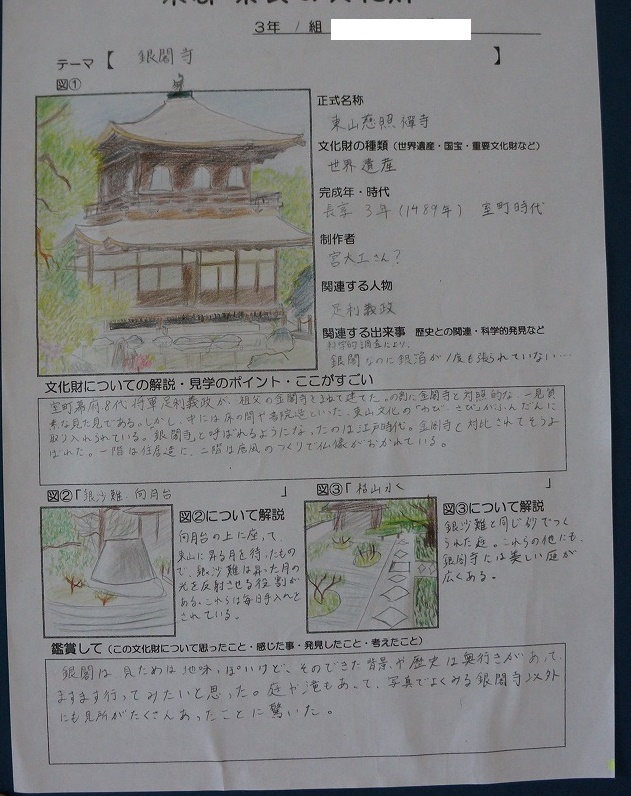 3年 1組
テーマ【 銀閣寺 】
図①
正式名称
東山慈照禅寺
文化財の種類（世界遺産・国宝・重要文化財など）
世界遺産
完成年・時代
長享3年(1489年) 室町時代
制作者
宮大工さん?
関連する人物
足利義政
関連する出来事 歴史との関連・科学的発見など
科学的調査により、
銀閣なのに銀箔が1度も張られていない…
文化財についての解説・見学のポイント・ここがすごい
室町幕府8代将軍足利義政が、祖父の金閣寺を
建てた。金閣寺と対照的な、一見質
素な見た目である。しかし、中には床の間や書院造といった、東山文化の「わび・さび」がふんだんに
取り入れられている。銀閣寺と呼ばれるようになったのは江戸時代。金閣寺と対比されてそうよ
ばれた。一階は住居造に、二階は唐風のつくりで仏像がおかれている。
図②「銀沙灘・向月台」
図②について解説
向月台の上に座って、
東山に昇る月を待ったもの
で、銀沙灘は昇った月の
光を反射させる役割が
ある。これらは毎日手入れを
されている。
図③「枯山水」
図③について解説
銀沙灘と同じ砂でつく
られた庭。これらの他にも、
銀閣寺には美しい庭が
広くある。
鑑賞して（この文化財について思ったこと・感じた事・発見したこと・考えたこと）
銀閣は見ためは地味っぽいけど、そのできた背景や歴史は奥行きがあって、
ますます行ってみたいと思った。庭や滝もあって、写真でよくみる銀閣寺以外
にも見所がたくさんあったことに驚いた。